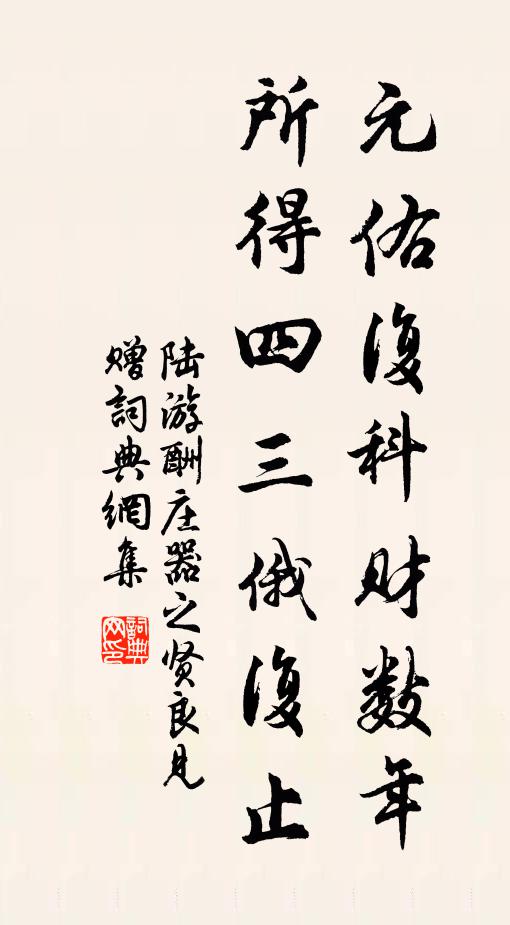 元佑復科财数年
所得四三俄復止
陆游酬庄器之贤良见
赠詞典網集
詞典網印